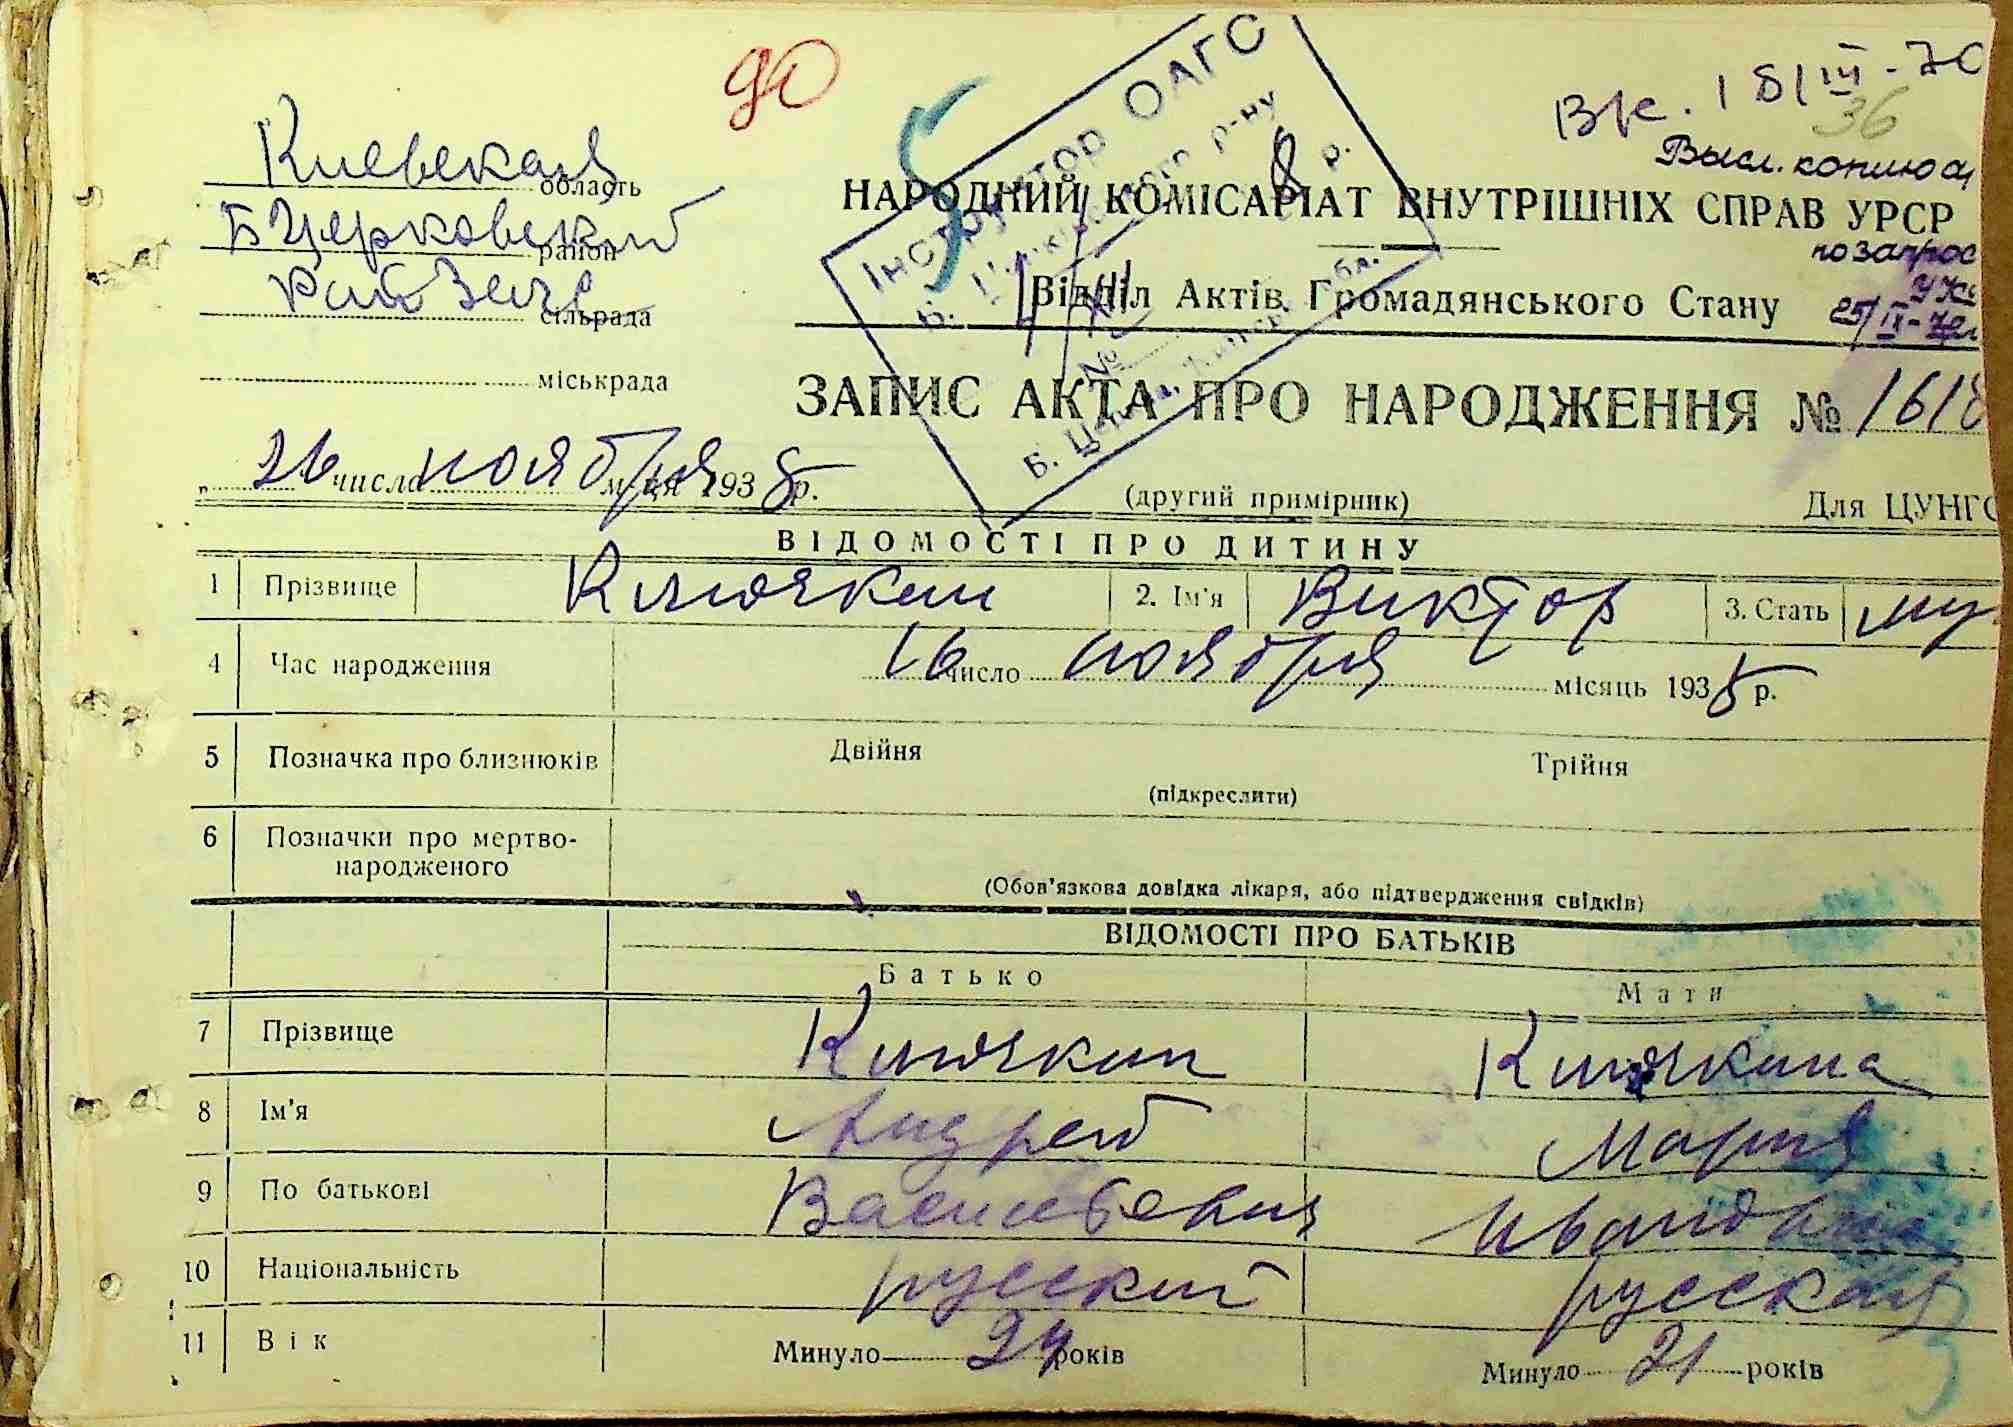 90
Вк. 18/III-70
36
Высл. копию
Киевская область
НАРОДНИЙ КОМІСАРІАТ ВНУТРІШНІХ СПРАВ УРСР
БЦерковский район
по запрос
Рай Загс сільрада
Відділ Актів Громадянського Стану
25/IX-
міськрада
Інструктор ОАГС
р-ну
№
ЗАПИС АКТА ПРО НАРОДЖЕННЯ № 1618
„ 26 числа ноября м-ця 1938 р.
(другий примірник)
Для ЦУНГО
ВІДОМОСТІ ПРО ДИТИНУ
1 Прізвище Клюякин 2. Ім'я Виктор 3. Стать му
4 Час народження 16 число ноября місяць 1938 р.
5 Позначка про близнюків Двійня Трійня
(підкреслити)
6 Позначки про мертво-
народженого
(Обов'язкова довідка лікаря, або підтвердження свідків)
ВІДОМОСТІ ПРО БАТЬКІВ
Батько Мати
7 Прізвище Клюякин Клюякина
8 Ім'я Андрей Мария
9 По батькові Васильевич Ивановна
10 Національність русский русская
11 Вік Минуло 24 років Минуло 21 років